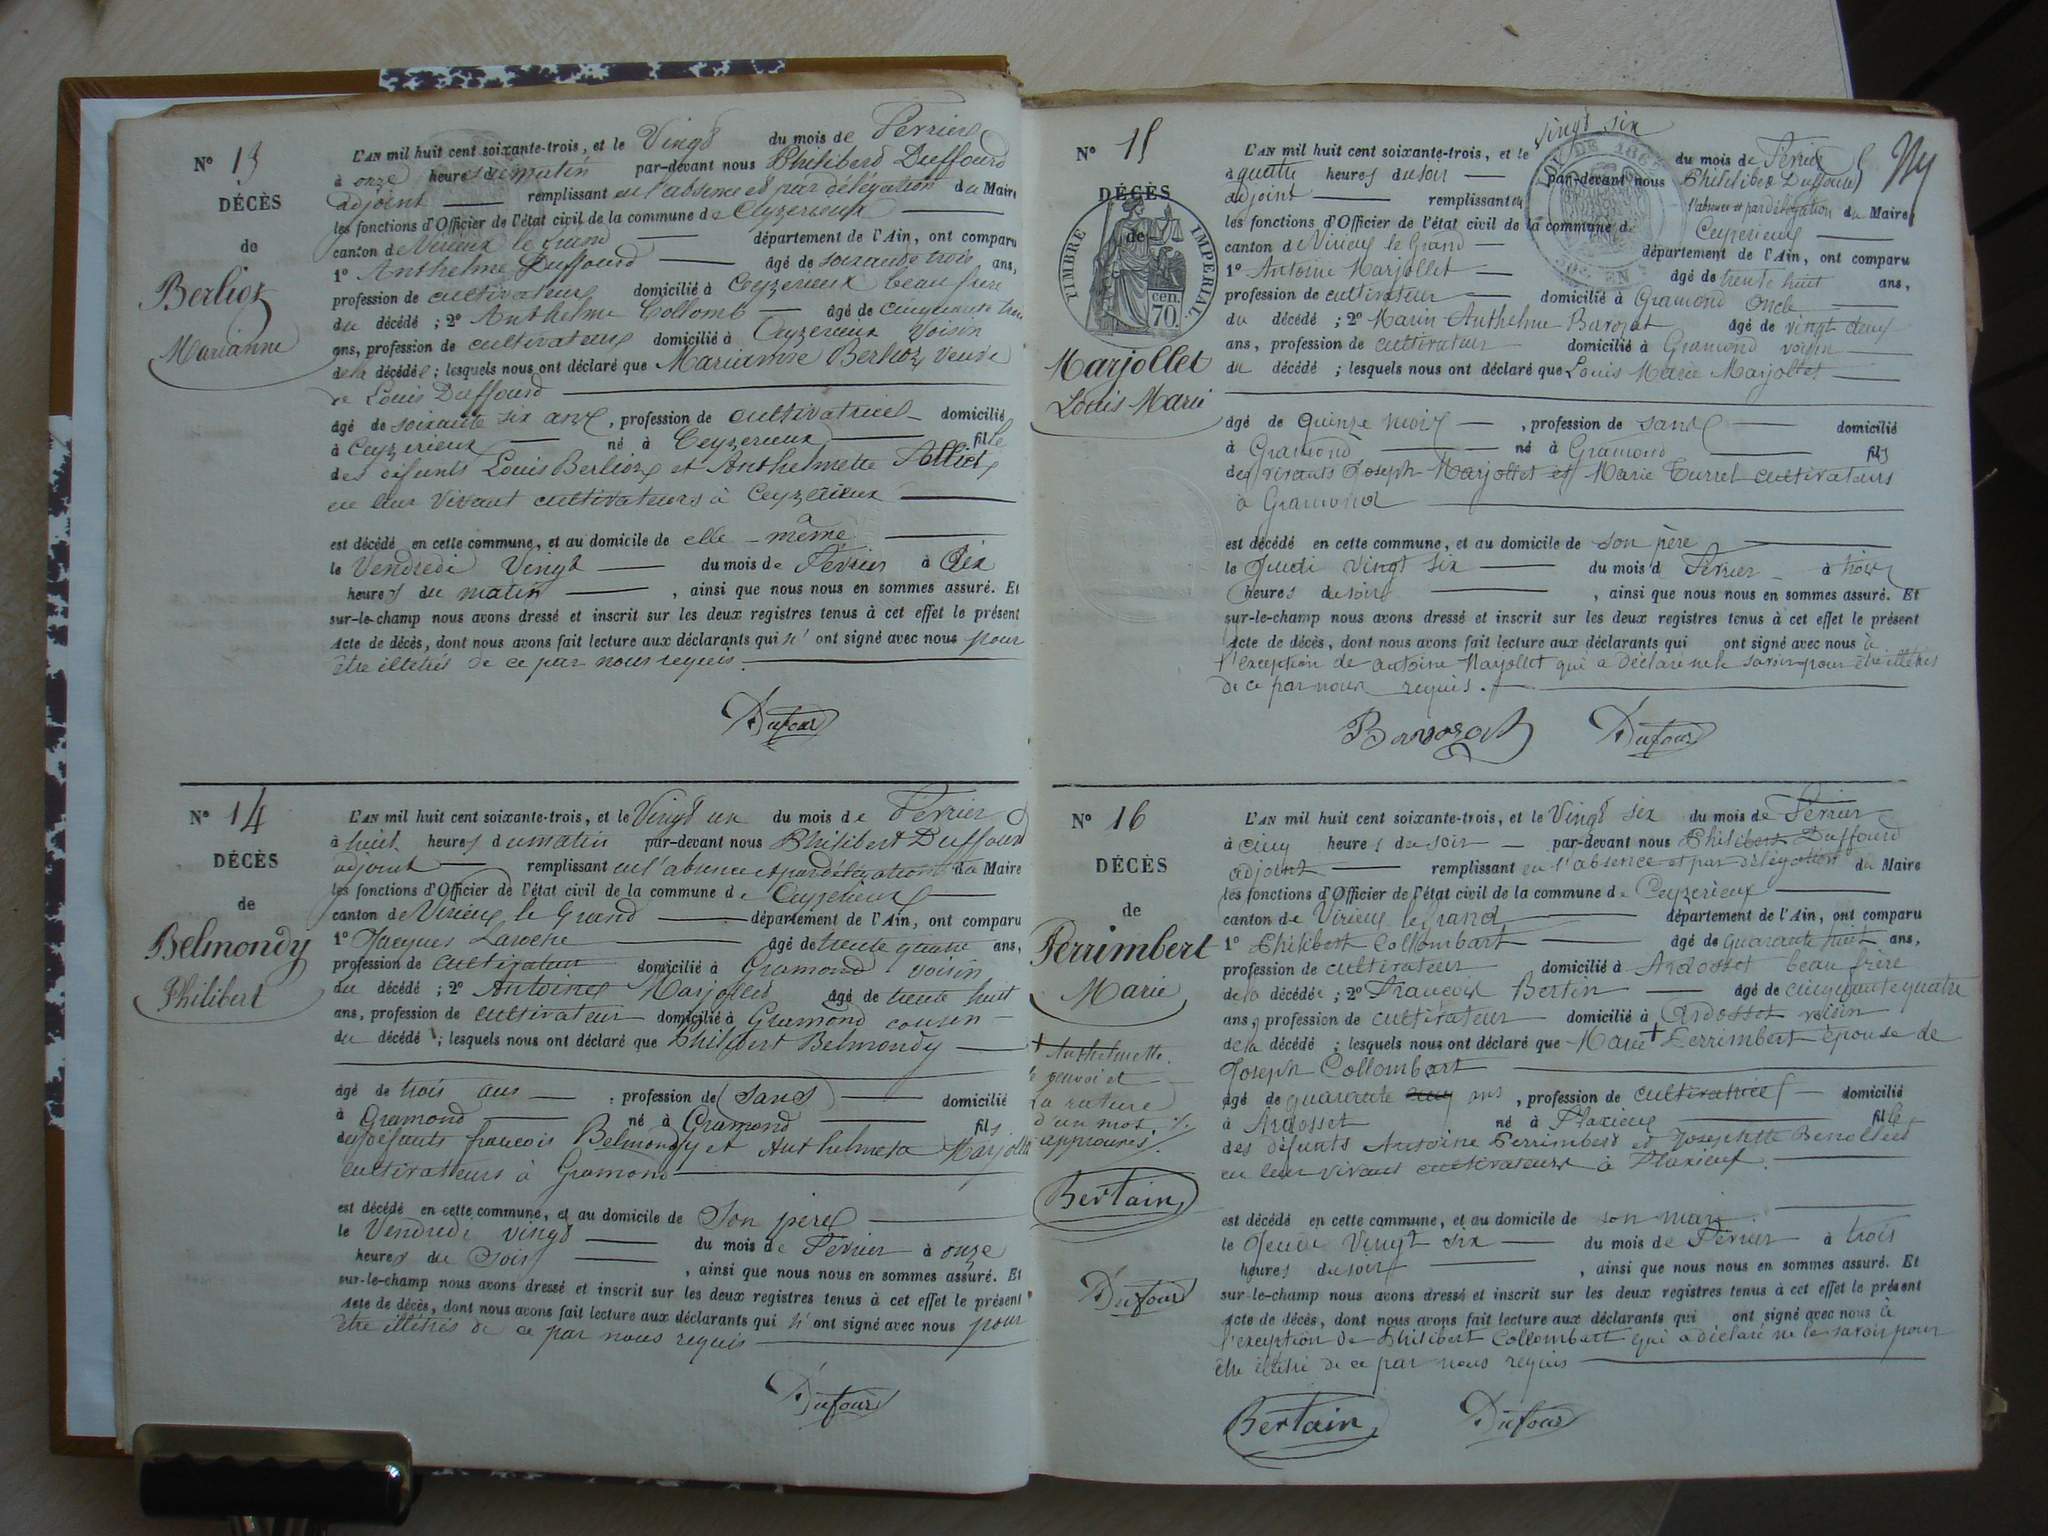 N° 13
DÉCÈS
de
Berlioz
Marianne
L'AN mil huit cent soixante-trois, et le Vingt du mois de Fevrier
à onze heures du matin par-devant nous Philiberd Duffourd
adjoint remplissant en l'absence et par délégation du Maire
les fonctions d'Officier de l'état civil de la commune de Ceyzerieux
canton de Virieux le grand département de l'Ain, ont comparu
1° Anthelme Duffourd âgé de soixante trois ans,
profession de cultivateur domicilié à Ceyzerieux beau frere
du décédé ; 2° Anthelme Collomb âgé de cinquante trois
ans, profession de cultivateur domicilié à Ceyzerieux Voisin
de la décédée ; lesquels nous ont déclaré que Marianne Berlioz veuve
de Louis Duffourd
âgé de soixante six ans, profession de cultivatrice domicilié
à Ceyzerieux né à Ceyzerieux fille
des défunts Louis Berlioz et Anthelmette
en leur vivant cultivateurs à Ceyzerieux
est décédé en cette commune, et au domicile de elle-même
le Vendredi Vingt du mois de Février à Dix
heures du matin , ainsi que nous nous en sommes assuré. Et
sur-le-champ nous avons dressé et inscrit sur les deux registres tenus à cet effet le présent
Acte de décès, dont nous avons fait lecture aux déclarants qui n' ont signé avec nous pour
être illétrés de ce par nous requis.
Dufour
N° 14
DÉCÈS
de
Belmondy
Philibert
L'AN mil huit cent soixante-trois, et le Vingt un du mois de Fevrier
à huit heures du matin par-devant nous Philibert Duffourd
adjoint remplissant en l'absence et par délégation du Maire
les fonctions d'Officier de l'état civil de la commune de Ceyzerieux
canton de Virieux le Grand département de l'Ain, ont comparu
1° Jacques Laroche âgé de trente quatre ans,
profession de cultivateur domicilié à Gramond voisin
du décédé ; 2° Antoine Marjollet âgé de trente huit
ans, profession de cultivateur domicilié à Gramond cousin
du décédé ; lesquels nous ont déclaré que Philibert Belmondy
âgé de trois ans , profession de sans domicilié
à Gramond né à Gramond fils
des défunts françois Belmondy et Anthelmeta Marjollet
cultivateurs à Gramond
est décédé en cette commune, et au domicile de Son père
le Vendredi vingt du mois de Février à onze
heures du Soir , ainsi que nous nous en sommes assuré. Et
sur-le-champ nous avons dressé et inscrit sur les deux registres tenus à cet effet le présent
Acte de décès, dont nous avons fait lecture aux déclarants qui n' ont signé avec nous pour
être illétrés de ce par nous requis
Dufour
N° 15
DÉCÈS
de
TIMBRE IMPERIAL.
cen.
70
Marjollet
Louis Marie
L'AN mil huit cent soixante-trois, et le vingt six du mois de Fevrier
à quatre heures du soir par-devant nous Philibert Duffourd
adjoint remplissant en l'absence et par délégation du Maire
les fonctions d'Officier de l'état civil de la commune de Ceyzerieux
canton de Virieux le Grand département de l'Ain, ont comparu
1° Antoine Marjollet âgé de trente huit ans,
profession de cultivateur domicilié à Gramond Oncle
du décédé ; 2° Marin Anthelme Barozat âgé de vingt deux
ans, profession de cultivateur domicilié à Gramond voisin
du décédé ; lesquels nous ont déclaré que Louis Marie Marjollet
âgé de quinze mois , profession de sans domicilié
à Gramond né à Gramond fils
des vivants Joseph Marjollet et Marie Turrel cultivateurs
à Gramond
est décédé en cette commune, et au domicile de son père
le Jeudi vingt six du mois de Fevrier à trois
heures du soir , ainsi que nous nous en sommes assuré. Et
sur-le-champ nous avons dressé et inscrit sur les deux registres tenus à cet effet le présent
Acte de décès, dont nous avons fait lecture aux déclarants qui ont signé avec nous à
l'exception de Antoine Marjollet qui a déclaré ne le savoir pour être illétrés
de ce par nous requis.
Barozat Dufour
N° 16
DÉCÈS
de
Perrimbert
Marie
+ Anthelmette.
le renvoi et
la rature
d'un mot
approuvés
Bertain
Dufour
L'AN mil huit cent soixante-trois, et le Vingt six du mois de Fevrier
à cinq heures du soir par-devant nous Philibert Duffourd
adjoint remplissant en l'absence et par délégation du Maire
les fonctions d'Officier de l'état civil de la commune de Ceyzerieux
canton de Virieux le grand département de l'Ain, ont comparu
1° Philibert Collombart âgé de quarante huit ans,
profession de cultivateur domicilié à Ardosset beau frère
de la décédée ; 2° François Bertin âgé de cinquante quatre
ans, profession de cultivateur domicilié à Ardosset voisin
de la décédé ; lesquels nous ont déclaré que Marie + Perrimbert épouse de
Joseph Collombart
âgé de quarante ans , profession de cultivatrice domicilié
à Ardosset né à Flaxieux fille
des défunts Antoine Perrimbert et Josephtte
en leur vivant cultivateurs à Flaxieux
est décédé en cette commune, et au domicile de son mari
le Jeudi Vingt six du mois de Février à trois
heures du soir , ainsi que nous nous en sommes assuré. Et
sur-le-champ nous avons dressé et inscrit sur les deux registres tenus à cet effet le présent
Acte de décès, dont nous avons fait lecture aux déclarants qui ont signé avec nous à
l'exception de Philibert Collombart qui a déclaré ne le savoir pour
être illétré de ce par nous requis
Bertain Dufour